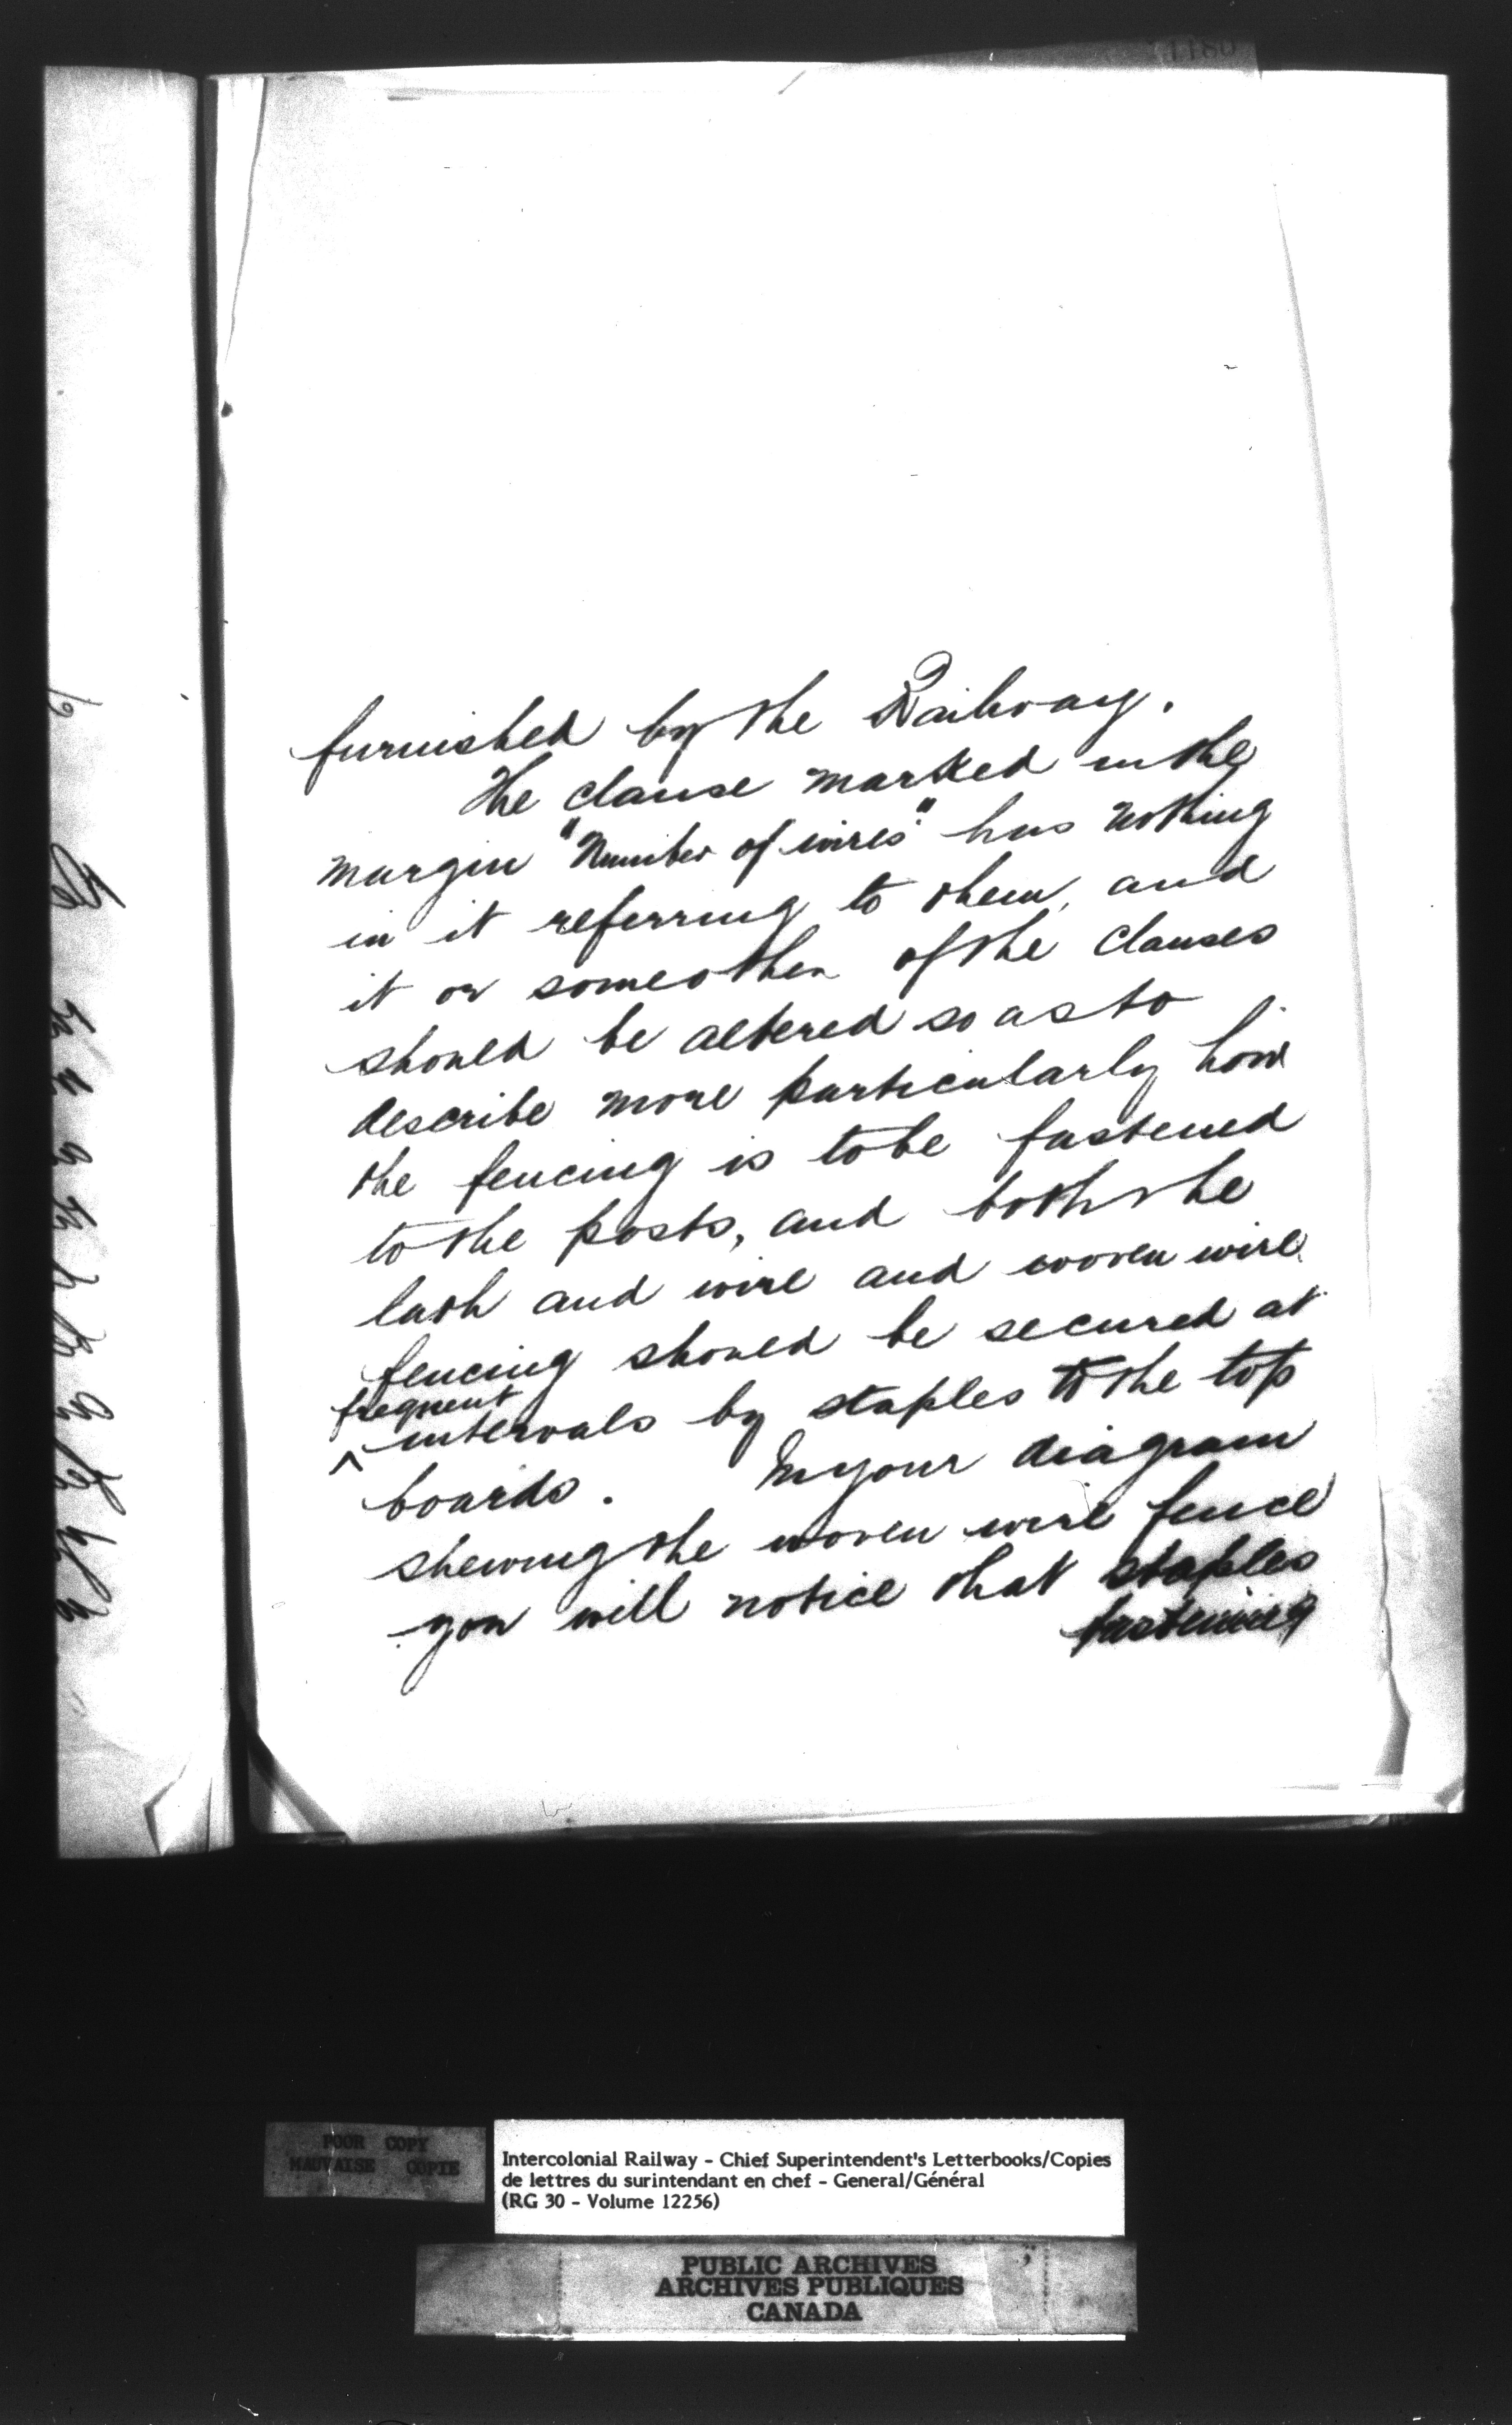 1180
furnished by the Railway.
The clause marked in the
margin "Number of wires" has nothing
in it referring to them, and
it or some other of the clauses
should be altered so as to
describe more particularly how
the fencing is to be fastened
to the posts, and both the
lath and wire and woven wire
fencing should be secured at
frequent
^ intervals by staples to the top
boards. In your diagram
shewing the woven wire fence
you will notice that staples
fastening
POOR COPY
MAUVAISE COPIE
Intercolonial Railway - Chief Superintendent's Letterbooks/Copies
de lettres du surintendant en chef - General/Général
(RG 30 - Volume 12256)
PUBLIC ARCHIVES
ARCHIVES PUBLIQUES
CANADA